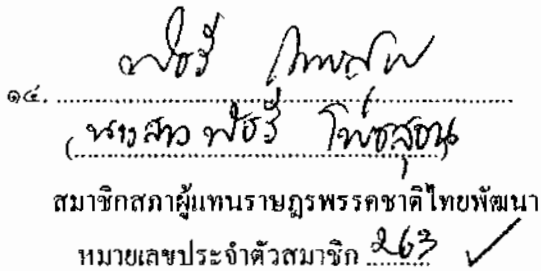 ๑๔.
(นางสาว พัชรี โพธสุธน)
สมาชิกสภาผู้แทนราษฎรพรรคชาติไทยพัฒนา
หมายเลขประจำตัวสมาชิก 263